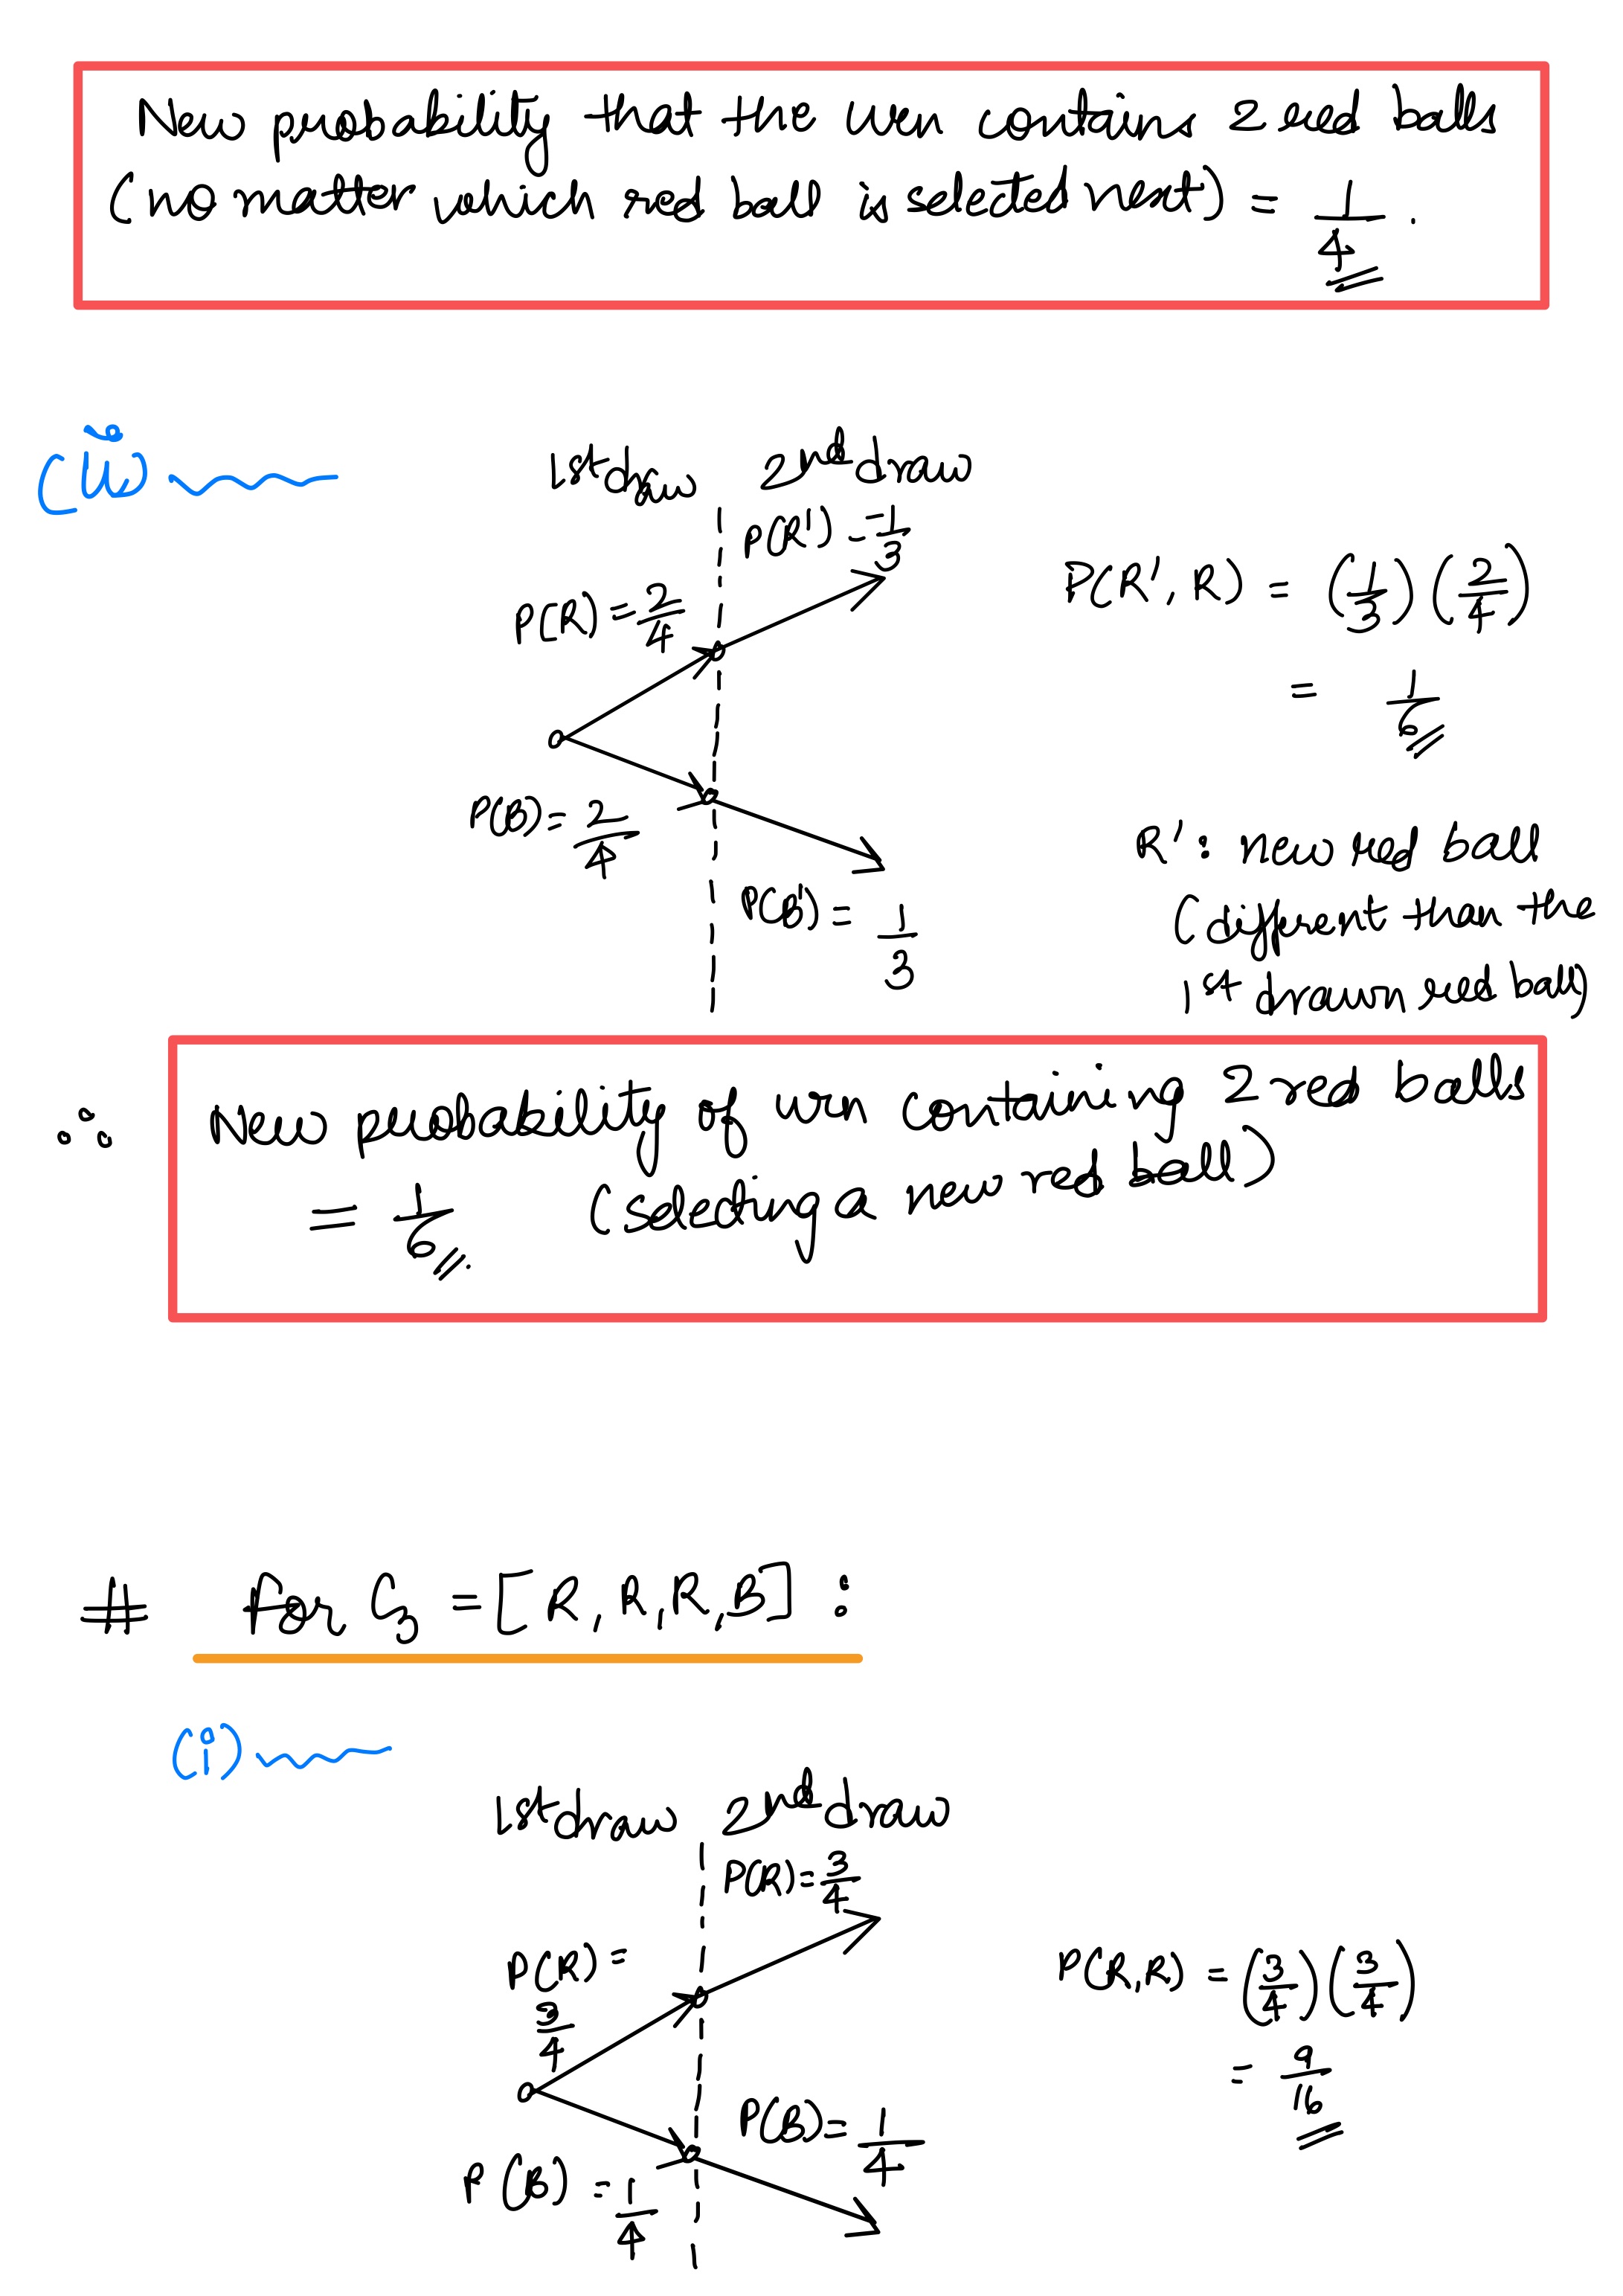 New probability that the urn contains 2 red balls
(no matter which red ball is selected next) = 1/4.
(ii)
1st draw 2nd draw
P(R') = 1/3
P(R) = 2/4
P(R', R) = (1/3)(2/4)
= 1/6
P(B) = 2/4
P(B') = 1/3
R' : new red ball
(different than the
1st drawn red ball)
∴ New probability of urn containing 2 red balls
= 1/6 (selecting a new red ball)
# for C3 = [R, R, R, B] :
(i)
1st draw 2nd draw
P(R) = 3/4
P(R) =
3/4
P(R,R) = (3/4)(3/4)
= 9/16
P(B) = 1/4
P(B) = 1/4